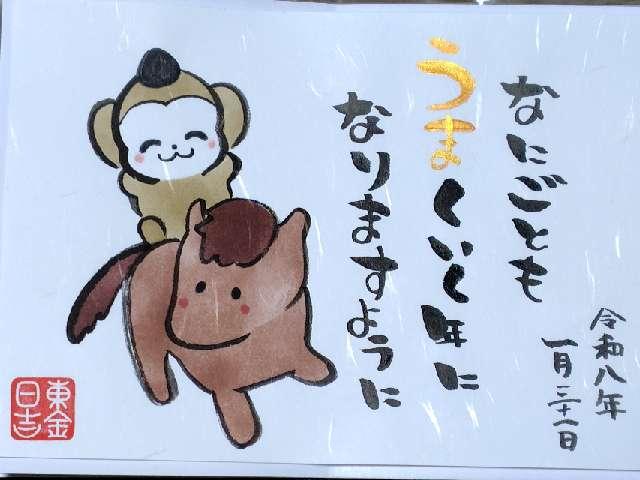 なにごとも
うまくいく年に
なりますように
令和八年
一月三十一日
東金
日吉